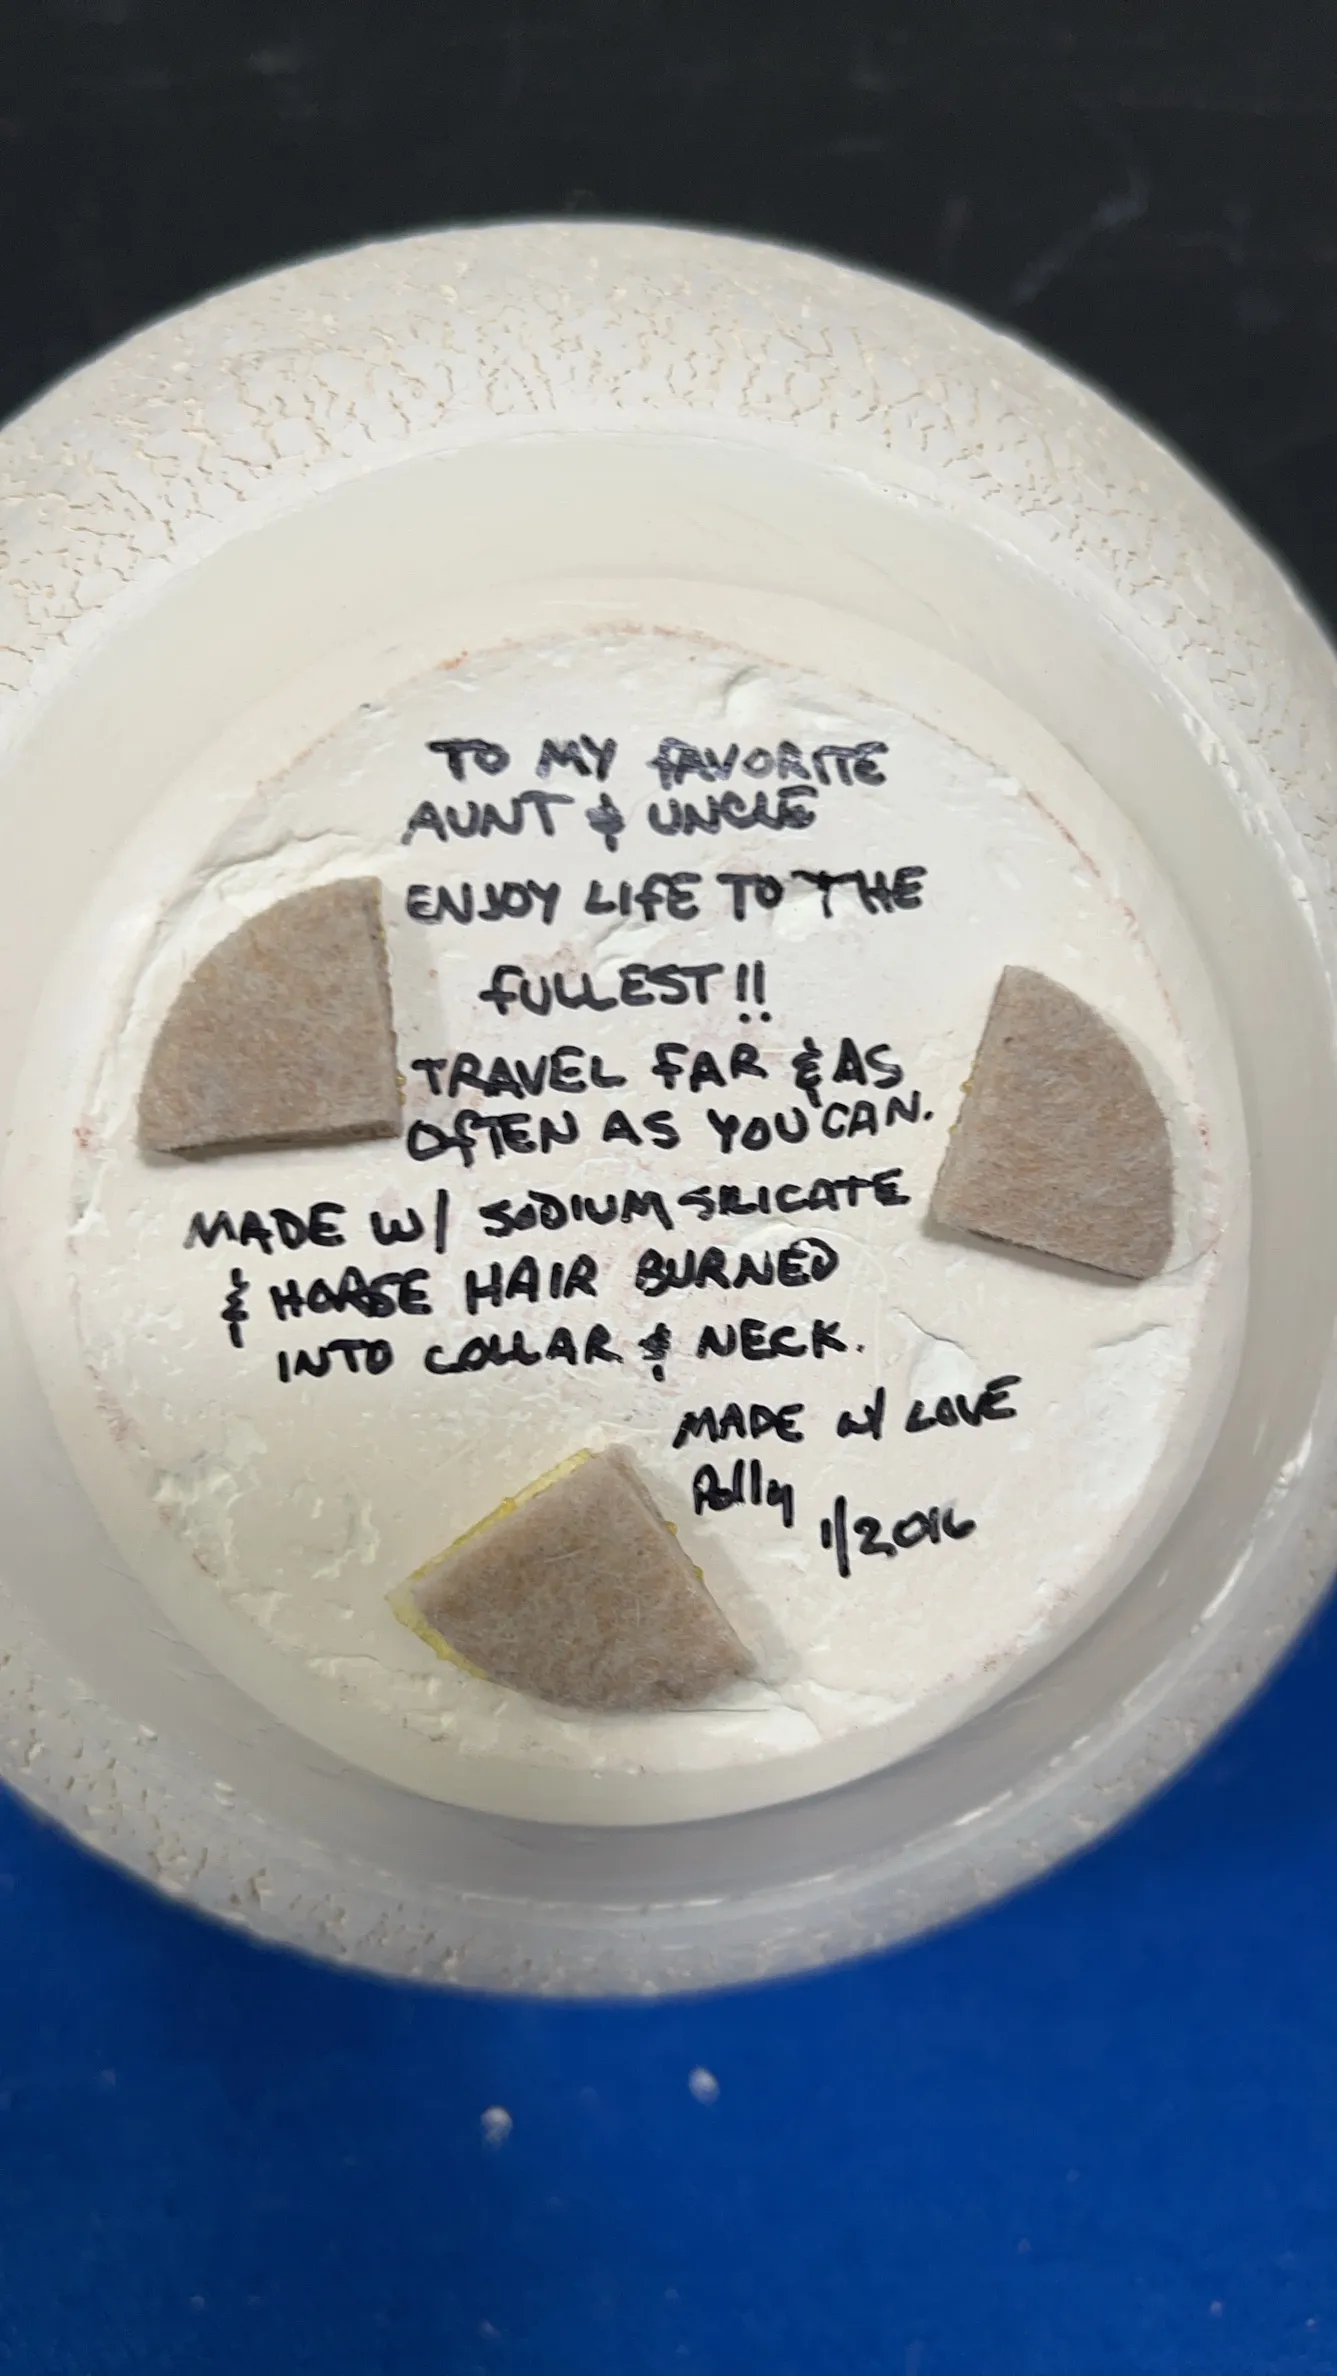 TO MY FAVORITE
AUNT & UNCLE
ENJOY LIFE TO THE
FULLEST!!
TRAVEL FAR & AS
OFTEN AS YOU CAN.
MADE W/ SODIUM SILICATE
& HORSE HAIR BURNED
INTO COLLAR & NECK.
MADE W/ LOVE
Polly
1/2016